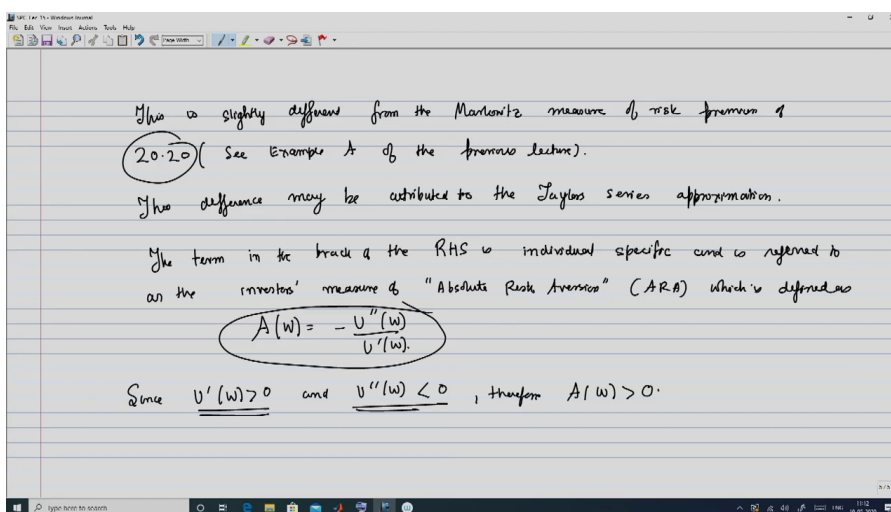 SPC Lec 15 - Windows Journal
File Edit View Insert Actions Tools Help
Page Width
This is slightly different from the Markowitz measure of risk premium of
20.20 (See Example A of the previous lecture).
This difference may be attributed to the Taylors series approximation.
The term in the brack of the RHS is individual specific and is referred to
as the investors' measure of "Absolute Risk Aversion" (ARA) which is defined as
A(W) = - U''(W)
U'(W).
Since U'(W)>0 and U''(W) < 0, therefore A(W) > 0.
5/5
Type here to search
ENG 11:12